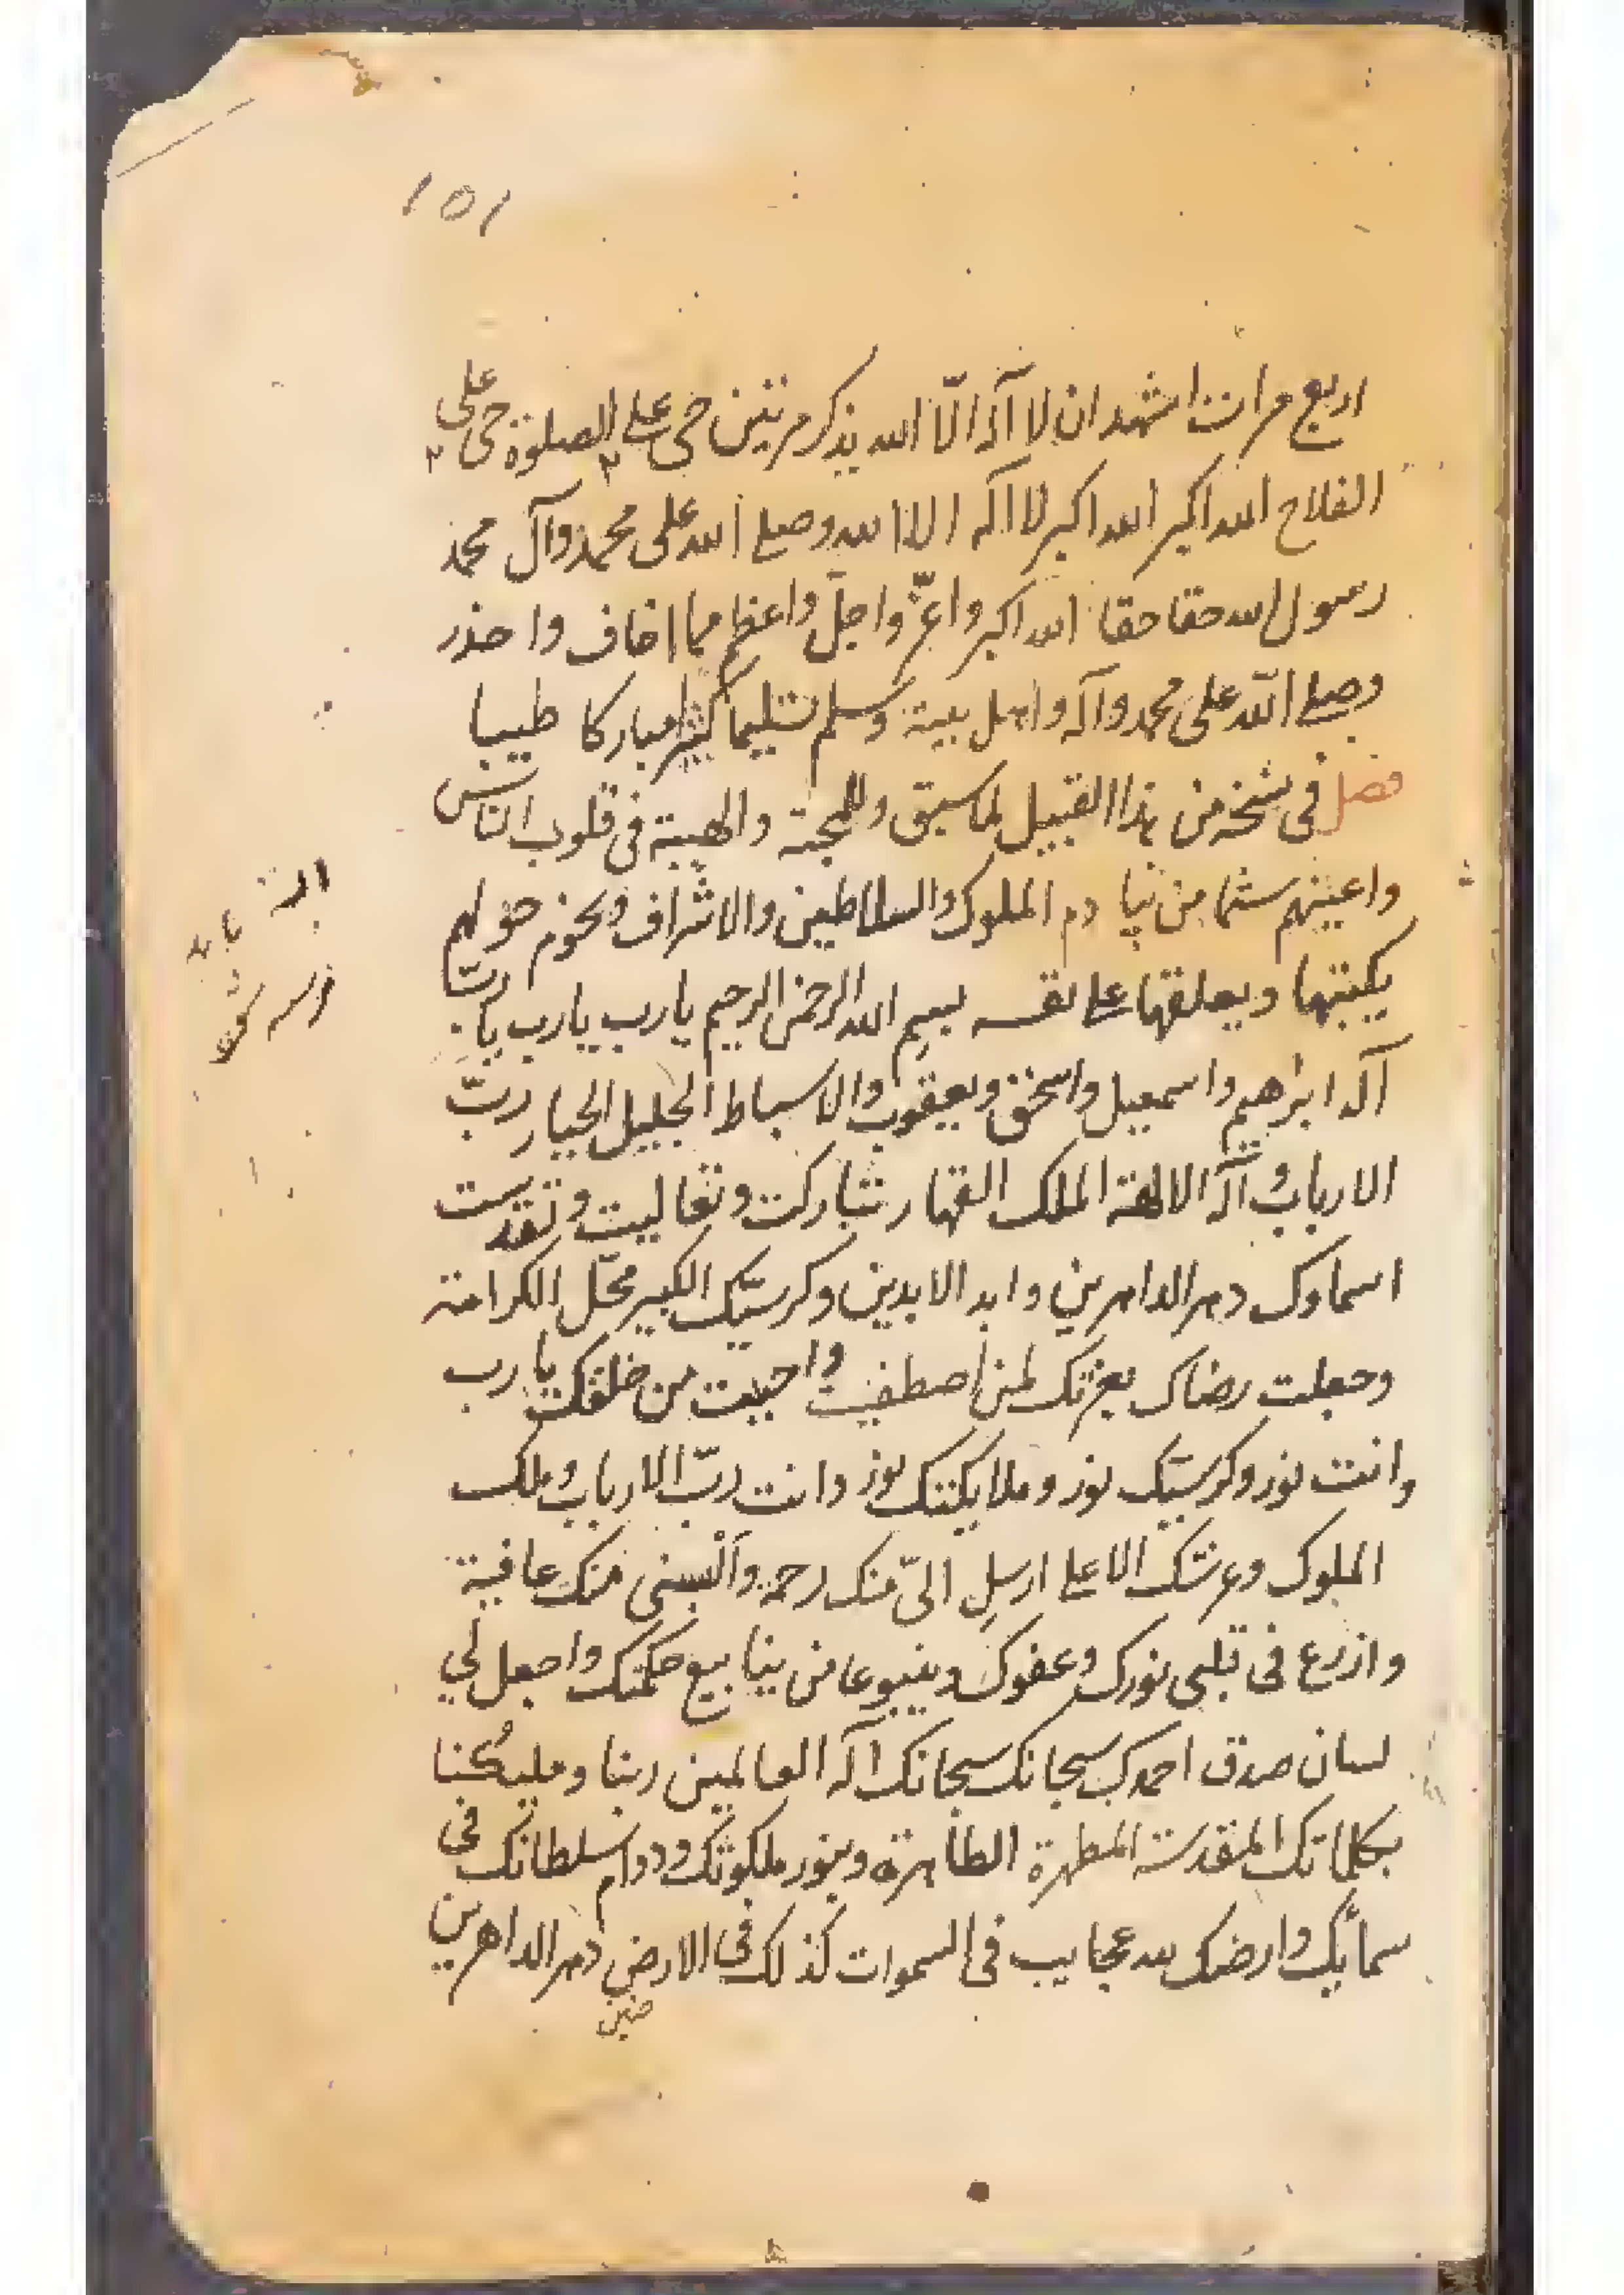 ١٥١
اربع مرات اشهد ان لا آله الّا الله يذكر مرتين حى على الصلوة ٢ حى على ٢
الفلاح الله اكبر الله اكبر لا اله الا الله وصلى الله على محمد وآل محمد
رسول الله حقا حقا الله اكبر واعزّ واجلّ واعظم مما اخاف واحذر
وصلى الله على محمد وآله واهل بيته وسلم تسليما كثيرا مباركا طيبا
فصل فى نسخه من هذا القبيل لما سبق وللمحبة والهيبة فى قلوب الناس
واعينهم من الملوك والسلاطين والاشراف ونحوهم
يكتبها ويعلقها على نفسه بسم الله الرحمن الرحيم يا رب يا رب يا ربّ
آله ابرهيم واسمعيل واسحق ويعقوب والاسباط الجليل الجبار ربّ
الارباب وآله الالهة الملك القهار تباركت وتعاليت وتقدست
اسماوك دهر الداهرين وابد الابدين وكرسيّك الكبير محلّ الكرامة
وجعلت رضاك بعزتك لمن اصطفيت واحببت من خلقك يا رب
وانت نور وكرسيّك نور وملايكتك نور وانت ربّ الارباب وملك
الملوك وعرشك الاعلى ارسل الىّ منك رحمة وأَلْبسنى منك عافية
وازرع فى قلبى نورك وعفوك وينبوعا من ينابيع حكمتك واجعل لي
لسان صدق احمدك سبحانك سبحانك اله العالمين ربنا ومليكُنا
بكلماتك المقدسة المطهرة الطاهرة وبنور ملكوتك ودوام سلطانك فى
سمائك وارضك لله عجايب فى السموات كذلك فى الارض دهر الداهرين